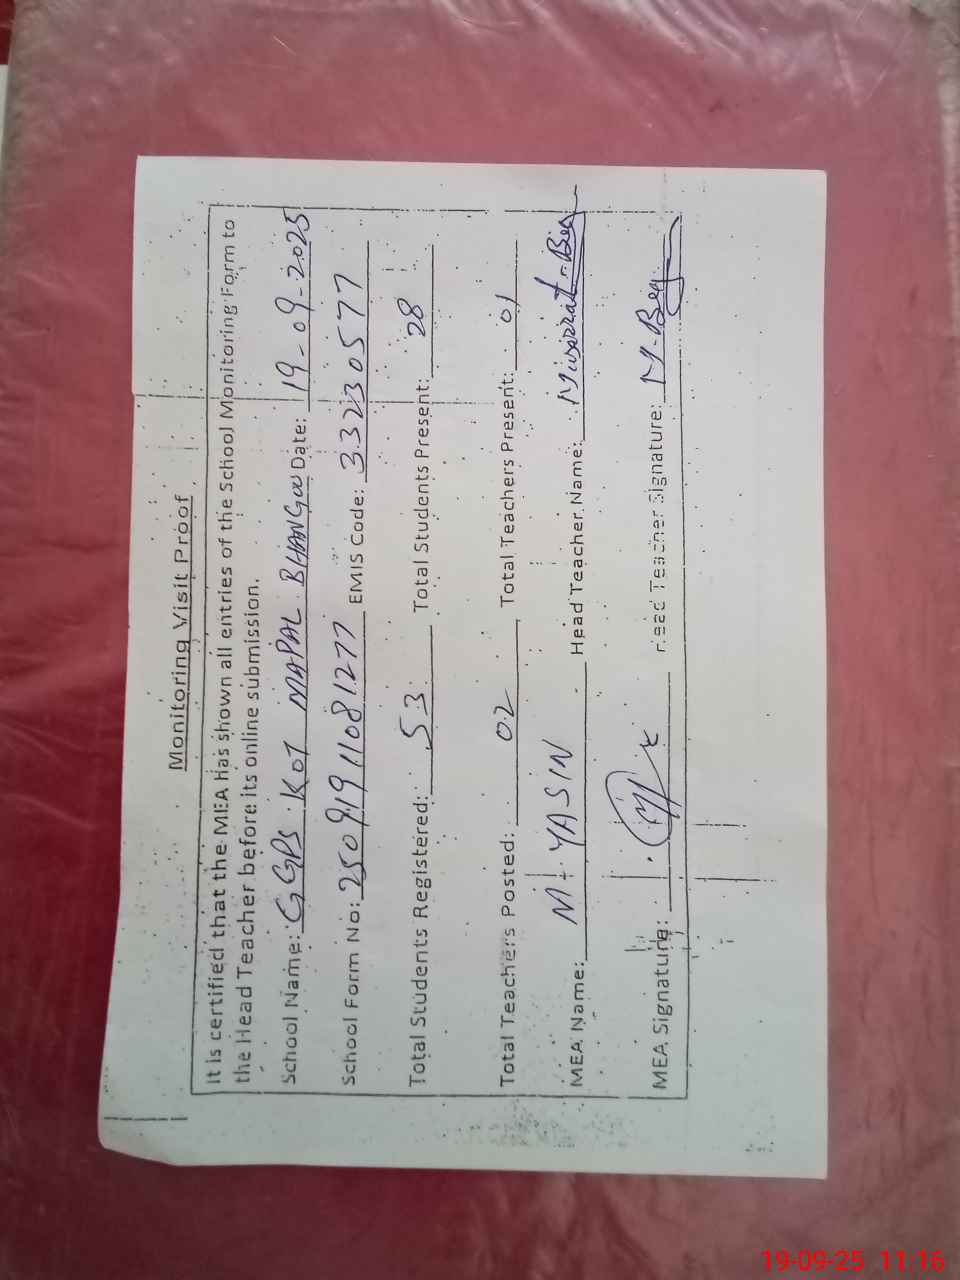 Monitoring Visit Proof
It is certified that the MEA has shown all entries of the School Monitoring Form to
the Head Teacher before its online submission.
School Name: GGPS KOT MAPAL BHANGOO Date: 19-09-2025
School Form No: 2509191108 1277 EMIS Code: 33230577
Total Students Registered: 53 Total Students Present: 28
Total Teachers Posted: 02 Total Teachers Present: 01
MEA Name: M. YASIN Head Teacher Name: Musarrat-Beg
MEA Signature: Head Teacher Signature: M-Beg
19-09-25 11:16